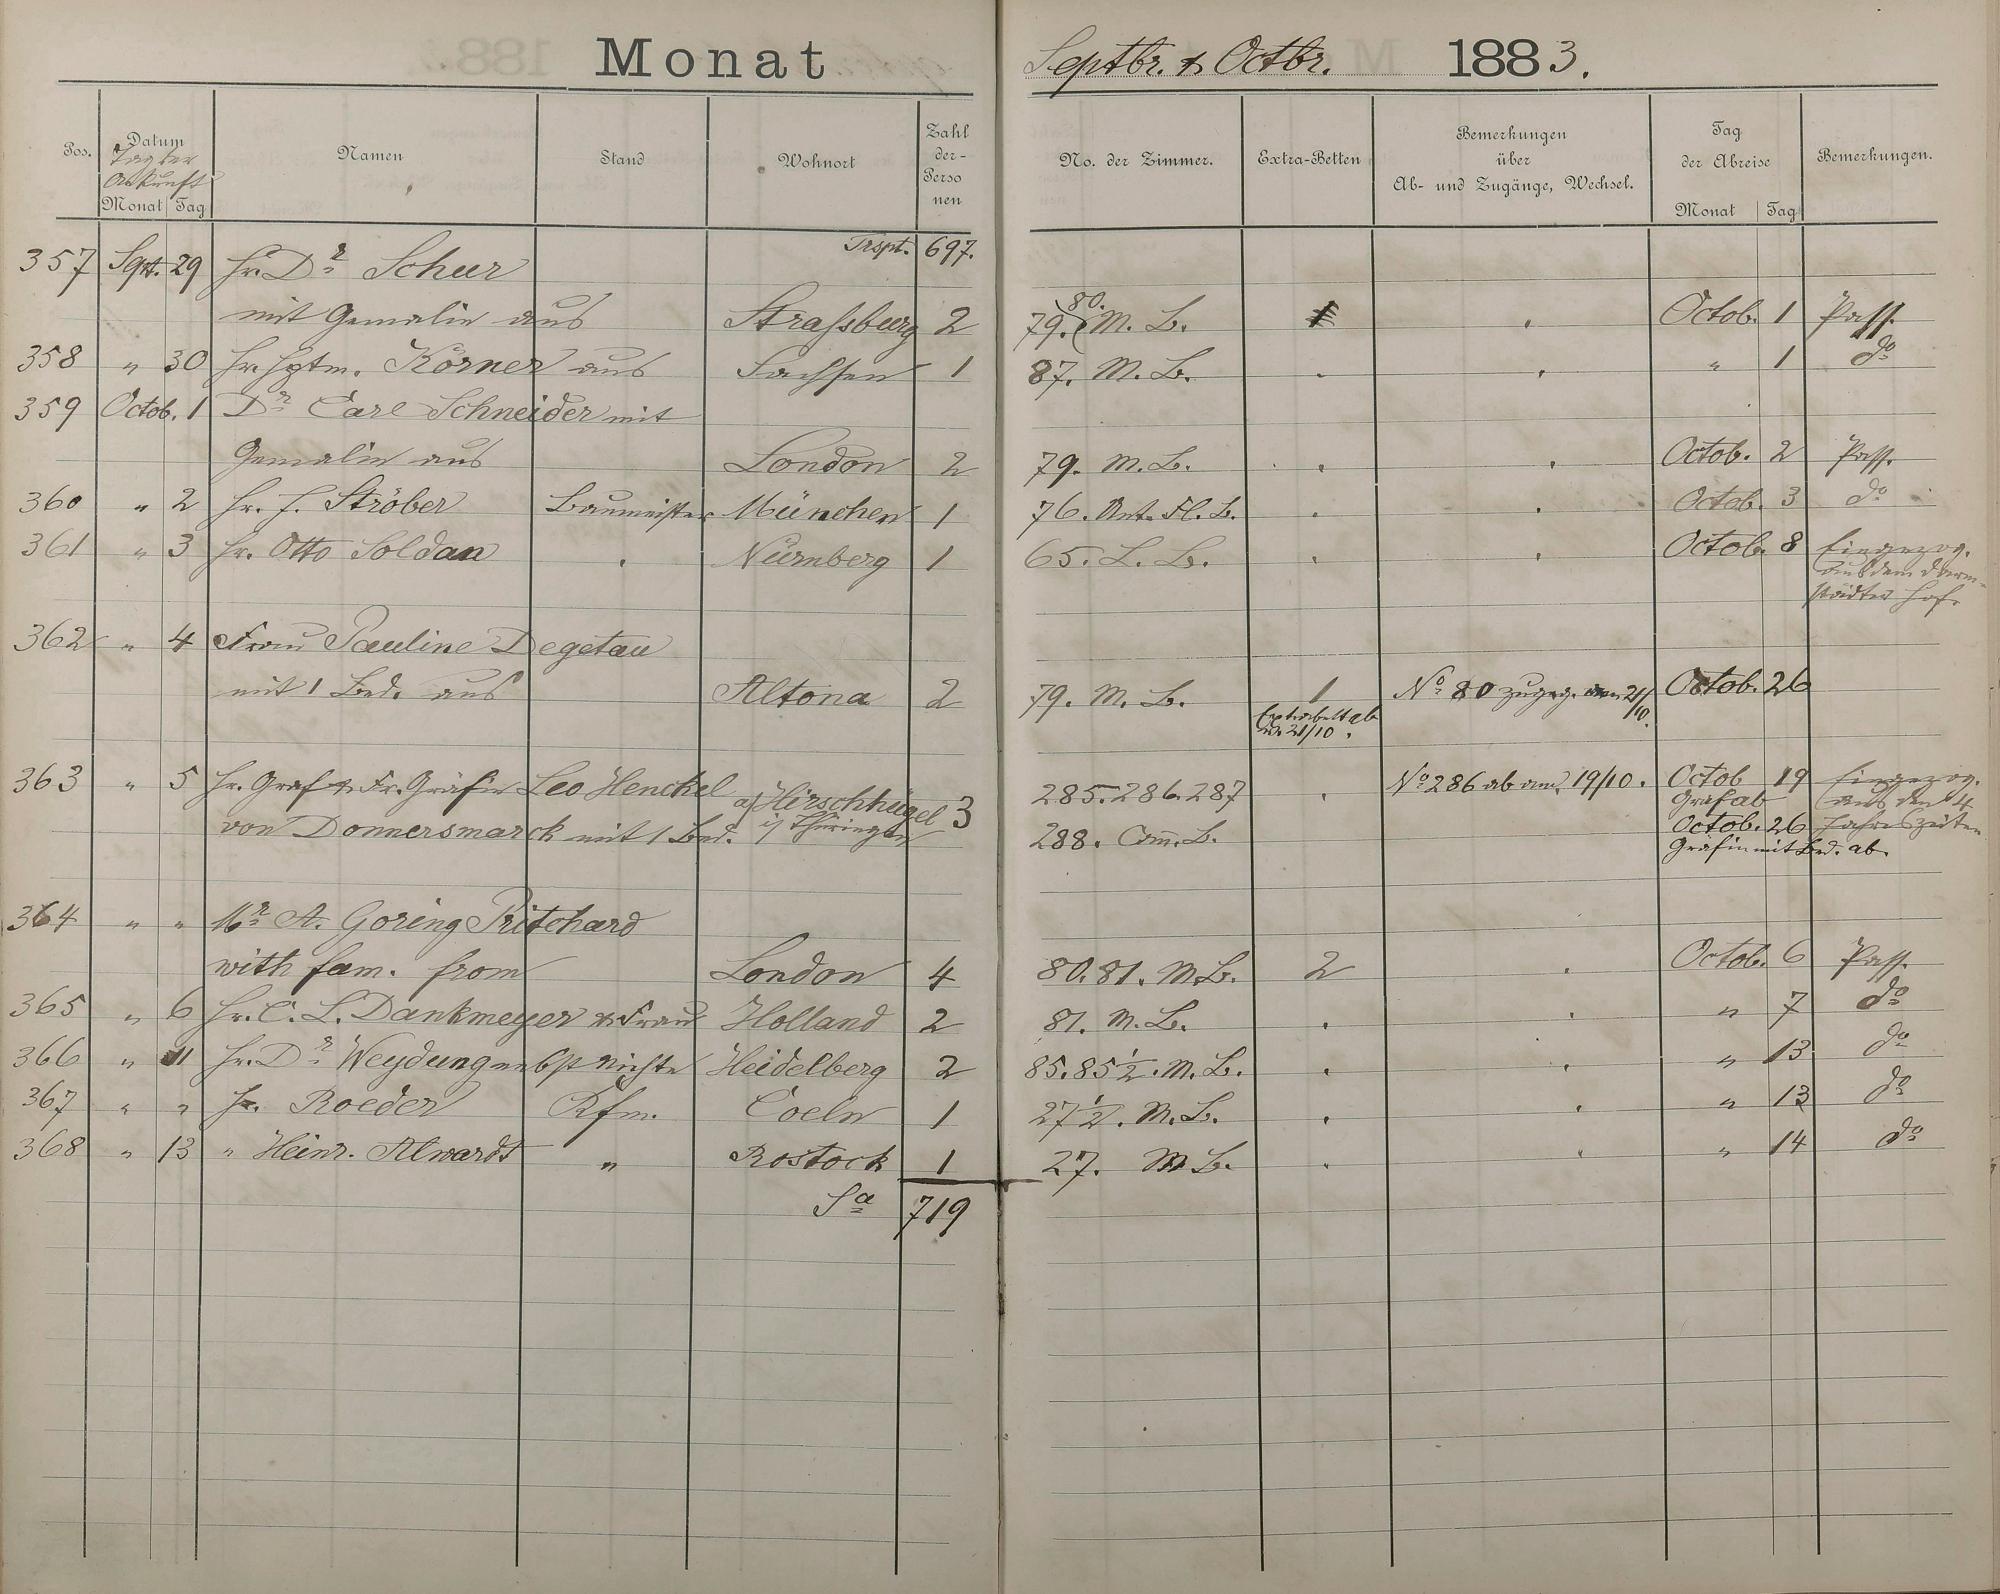 Monat Septbr. & Octbr. 1883.
Pos. Datum Namen Stand Wohnort Zahl der Personen No. der Zimmer. Extra-Betten Bemerkungen über Ab- und Zugänge, Wechsel. Tag der Abreise Bemerkungen.
Tag der Ankunft
Monat Tag Monat Tag
Trspt. 697.
357 Spt. 29 Hr. Dr. Scheer
mit Gemalin aus Straßburg 2 79. 80. M. B. Octob. 1 Pass.
358 " 30 Hr. Hptm. Körner aus Sachsen 1 87. M. B. " 1 do
359 Octob. 1 Dr. Carl Schneider mit
Gemalin aus London 2 79. M. B. Octob. 2 Pass.
360 " 2 Hr. F. Ströber Baumeister München 1 76. Ant. Fl. B. Octob. 3 do
361 " 3 Hr. Otto Soldan Nürnberg 1 65. L. B. Octob. 8 Eingezog.
aus dem Darm-
städter Hof.
362 " 4 Frau Pauline Degetau
mit 1 Bed. aus Altona 2 79. M. B. 1 No. 80 zugeg. am 21/10. Octob. 26
Extrabett ab
am 21/10.
363 " 5 Hr. Graf & Fr. Gräfin Leo Henckel a/ Hirschhügel 3 285. 286. 287 No. 286 ab am 19/10. Octob 19 Eingezog.
Graf ab aus den 4
von Donnersmarck mit 1 Bed. i/ Thüringen 288. Com. B. Octob. 26 Jahreszeiten
Gräfin mit Bed. ab.
364 " " Mr. A. Goring Pritchard
with fam. from London 4 80. 81. M. B. 2 Octob. 6 Pass.
365 " 6 Hr. C. L. Dankmeyer & Frau Holland 2 81. M. B. " 7 do
366 " 11 Hr. Dr. Weydung nebst Nichte Heidelberg 2 85. 85 1/2. M. B. " 13 do
367 " " Hr. Roeder Kfm. Coeln 1 27 1/2. M. B. " 13 do
368 " 13 " Heinr. Alwardt " Rostock 1 27. M B. " 14 do
Sa 719